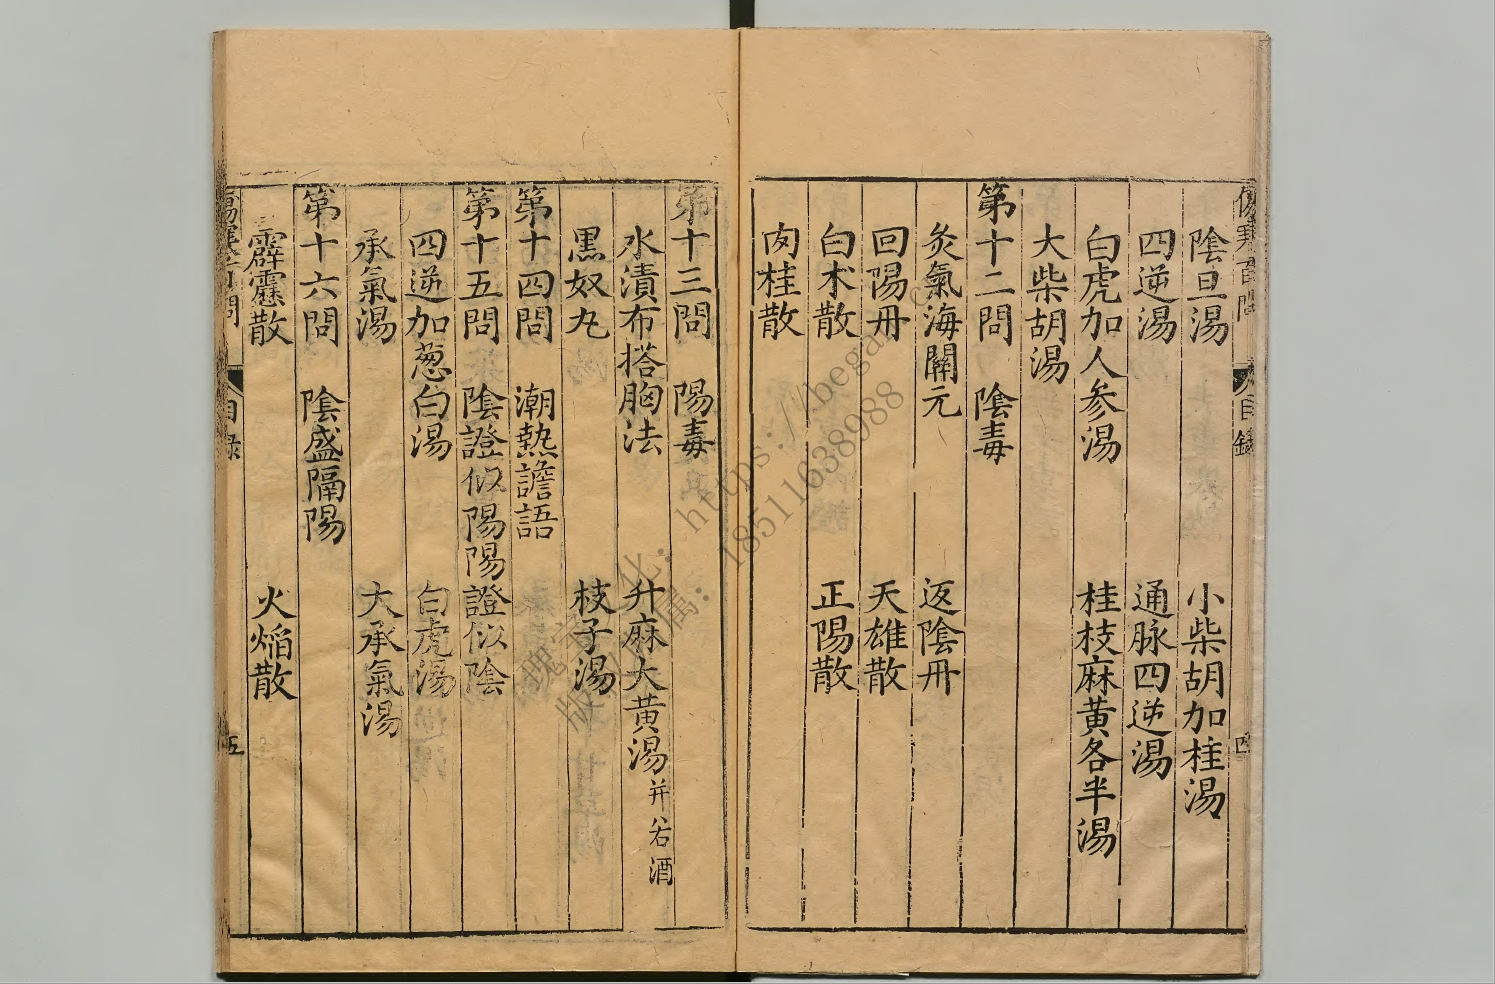 傷寒百問 目錄 四
陰旦湯 小柴胡加桂湯
四逆湯 通脉四逆湯
白虎加人参湯 桂枝麻黃各半湯
大柴胡湯
第十二問 陰毒
灸氣海關元 返陰丹
回陽丹 天雄散
白朮散 正陽散
肉桂散
第十三問 陽毒
水漬布搭胸法 升麻大黃湯
黑奴丸 枝子湯
第十四問 潮熱譫語
第十五問 陰證似陽陽證似陰
四逆加葱白湯 白虎湯
承氣湯 大承氣湯
第十六問 陰盛隔陽
霹靂散 火焰散
目錄 五
https://began
18511638988